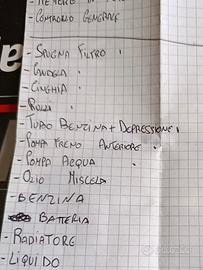 - CONTROLLO GENERALE
- SPUGNA FILTRO
- CANDELA
- CINGHIA
- RULLI
- TUBO BENZINA + DEPRESSIONE
- POMPA FRENO ANTERIORE
- POMPA ACQUA
- OLIO MISCELA
- BENZINA
BATTERIA
- RADIATORE
- LIQUIDO